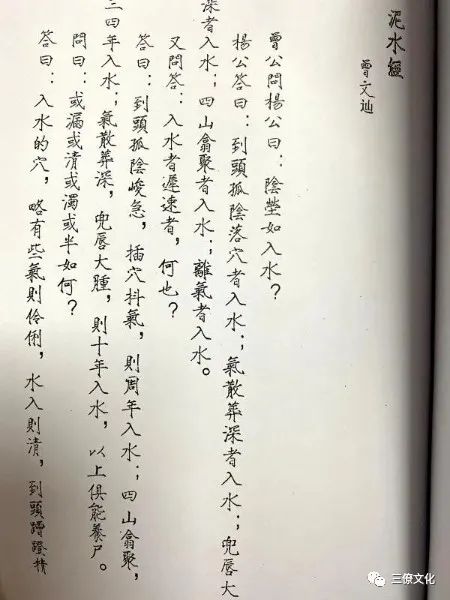 泥水經
曾文辿
曾公問楊公曰：陰塋如入水？
楊公答曰：到頭孤陰落穴者入水；氣散葬深者入水；兜唇大
深者入水；四山翕聚者入水；離氣者入水。
又問答：入水者遲速者，何也？
答曰：到頭孤陰峻急，插穴抖氣，則周年入水；四山翕聚，
三四年入水；氣散葬深，兜唇大腫，則十年入水，以上俱能養尸。
問曰：或漏或清或濁或半如何？
答曰：入水的穴，略有些氣則伶俐，水入則清，到頭蹲蹬
三僚文化